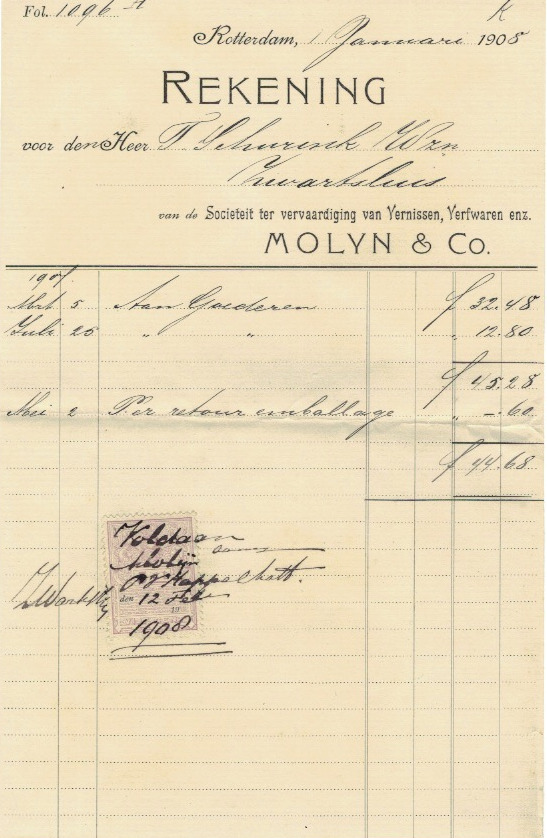 Fol. 1096
Rotterdam, 1 Januari 1908
REKENING
voor den Heer T Schurink Wzn
Zwartsluis
van de Societeit ter vervaardiging van Vernissen, Verfwaren enz.
MOLYN & Co.
1907
Mrt 5 Aan Goederen f 32.48
Juli 25 " " " 12.80
f 45.28
Mei 2 Per retour emballage " -.60
f 44.68
Voldaan
Molyn
den 12 Feb
1908